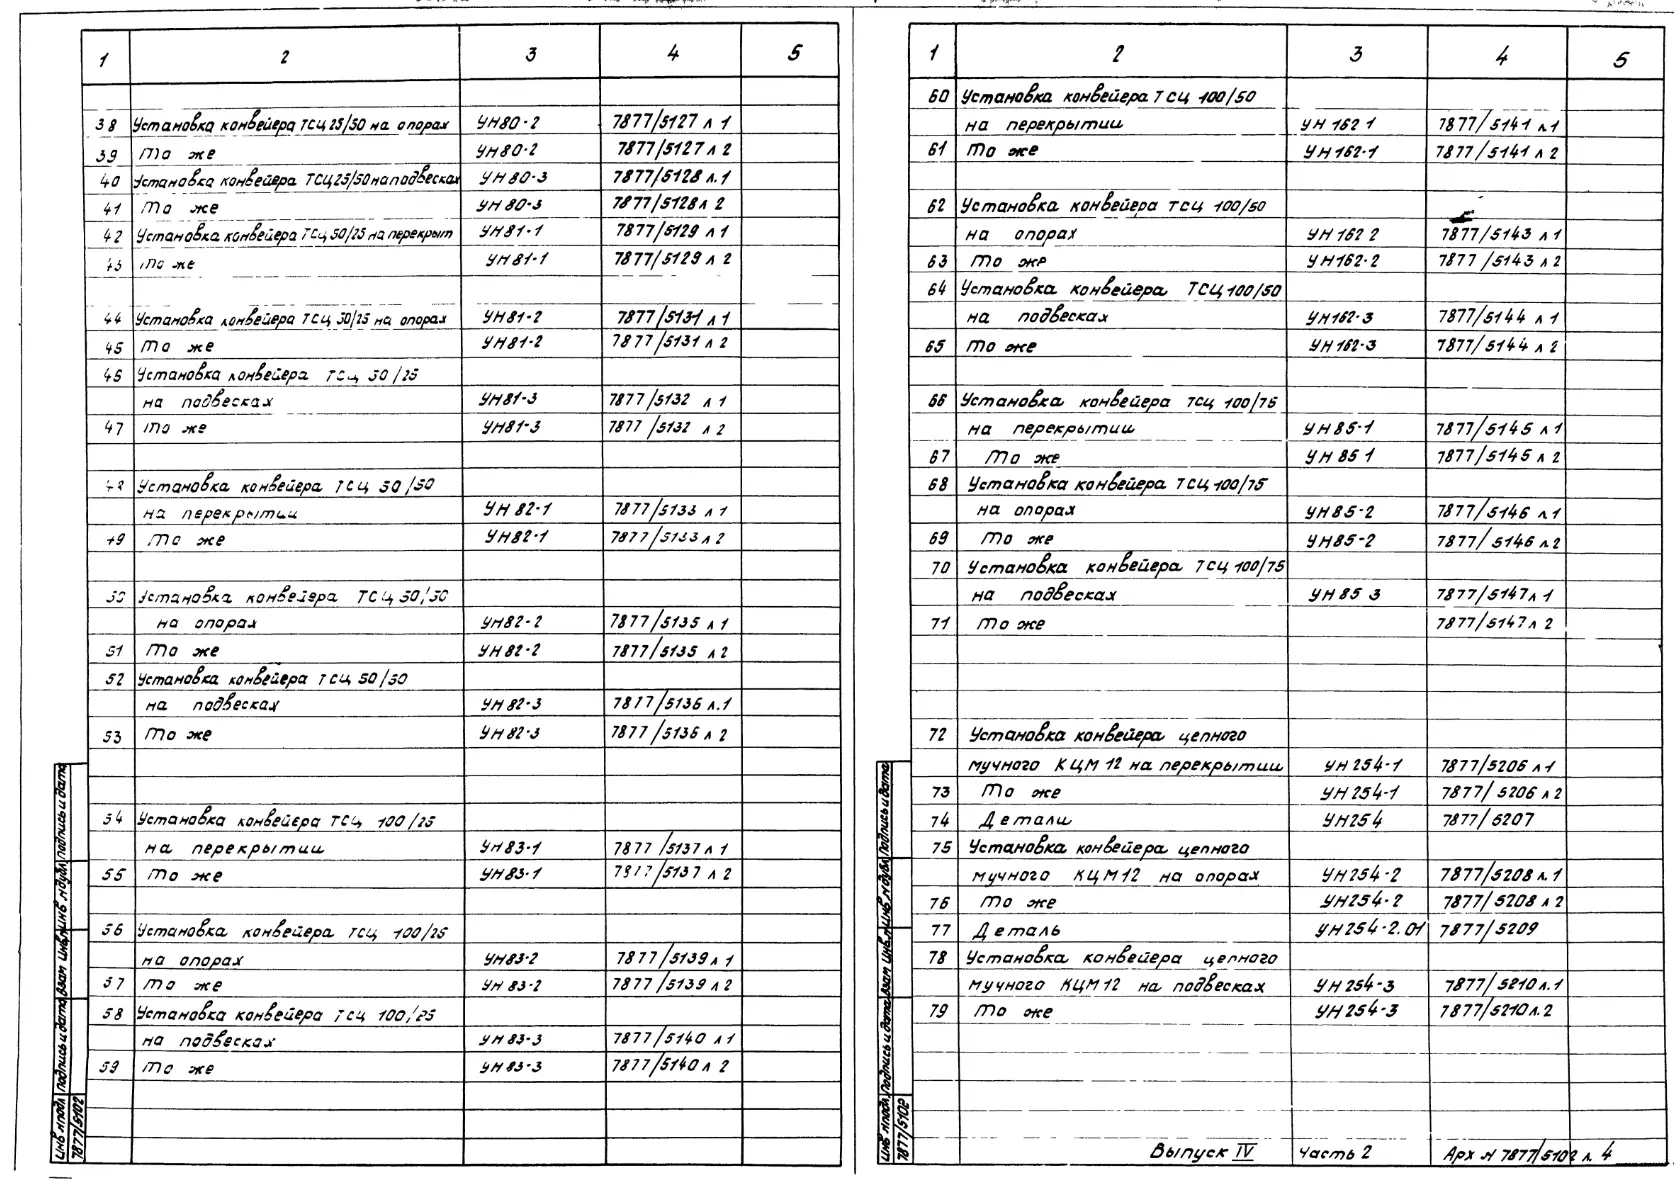 1 2 3 4 5
38 Установка конвейера ТСЦ 25/50 на опорах УН80-2 7877/5127 л 1
39 То же УН80-2 7877/5127 л 2
40 Установка конвейера ТСЦ25/50 на подвесках УН 80-3 7877/5128 л.1
41 То же УН 80-3 7877/5128 л 2
42 Установка конвейера ТСЦ 50/25 на перекрыт УН81-1 7877/5129 л 1
43 То же УН81-1 7877/5129 л 2
44 Установка конвейера ТСЦ 50/25 на опорах УН81-2 7877/5131 л 1
45 То же УН81-2 7877/5131 л 2
46 Установка конвейера ТСЦ 50/25
на подвесках УН81-3 7877/5132 л 1
47 То же УН81-3 7877/5132 л 2
48 Установка конвейера ТСЦ 50/50
на перекрытии УН 82-1 7877/5133 л 1
49 То же УН82-1 7877/5133 л 2
50 Установка конвейера ТСЦ 50/50
на опорах УН82-2 7877/5135 л 1
51 То же УН 82-2 7877/5135 л 2
52 Установка конвейера ТСЦ 50/50
на подвесках УН 82-3 7877/5136 л.1
53 То же УН 82-3 7877/5136 л 2
54 Установка конвейера ТСЦ 100/25
на перекрытии УН 83-1 7877/5137 л 1
55 То же УН83-1 7877/5137 л 2
56 Установка конвейера ТСЦ 100/25
на опорах УН83-2 7877/5139 л 1
57 То же УН 83-2 7877/5139 л 2
58 Установка конвейера ТСЦ 100/25
на подвесках УН 83-3 7877/5140 л 1
59 То же УН 83-3 7877/5140 л 2
Инв № подл Подпись и дата Взам инв № Инв № дубл Подпись и дата
7877/5102
1 2 3 4 5
60 Установка конвейера ТСЦ 100/50
на перекрытии УН 162 1 7877/5141 л 1
61 То же УН 162-1 7877/5141 л 2
62 Установка конвейера ТСЦ 100/50
на опорах УН 162 2 7877/5143 л 1
63 То же УН162-2 7877/5143 л 2
64 Установка конвейера ТСЦ 100/50
на подвесках УН162-3 7877/5144 л 1
65 То же УН 162-3 7877/5144 л 2
66 Установка конвейера ТСЦ 100/75
на перекрытии УН 85-1 7877/5145 л 1
67 То же УН 85 1 7877/5145 л 2
68 Установка конвейера ТСЦ 100/75
на опорах УН85-2 7877/5146 л.1
69 То же УН85-2 7877/5146 л.2
70 Установка конвейера ТСЦ 100/75
на подвесках УН 85 3 7877/5147 л 1
71 То же 7877/5147 л 2
72 Установка конвейера цепного
мучного КЦМ 12 на перекрытии УН 254-1 7877/5206 л 1
73 То же УН 254-1 7877/5206 л 2
74 Детали УН254 7877/5207
75 Установка конвейера цепного
мучного КЦМ12 на опорах УН254-2 7877/5208 л.1
76 То же УН254-2 7877/5208 л 2
77 Деталь УН254-2.01 7877/5209
78 Установка конвейера цепного
мучного КЦМ12 на подвесках УН 254-3 7877/5210 л.1
79 То же УН 254-3 7877/5210 л.2
Инв № подл Подпись и дата Взам инв № Инв № дубл Подпись и дата
7877/5102
Выпуск IV Часть 2 Арх № 7877/5102 л. 4